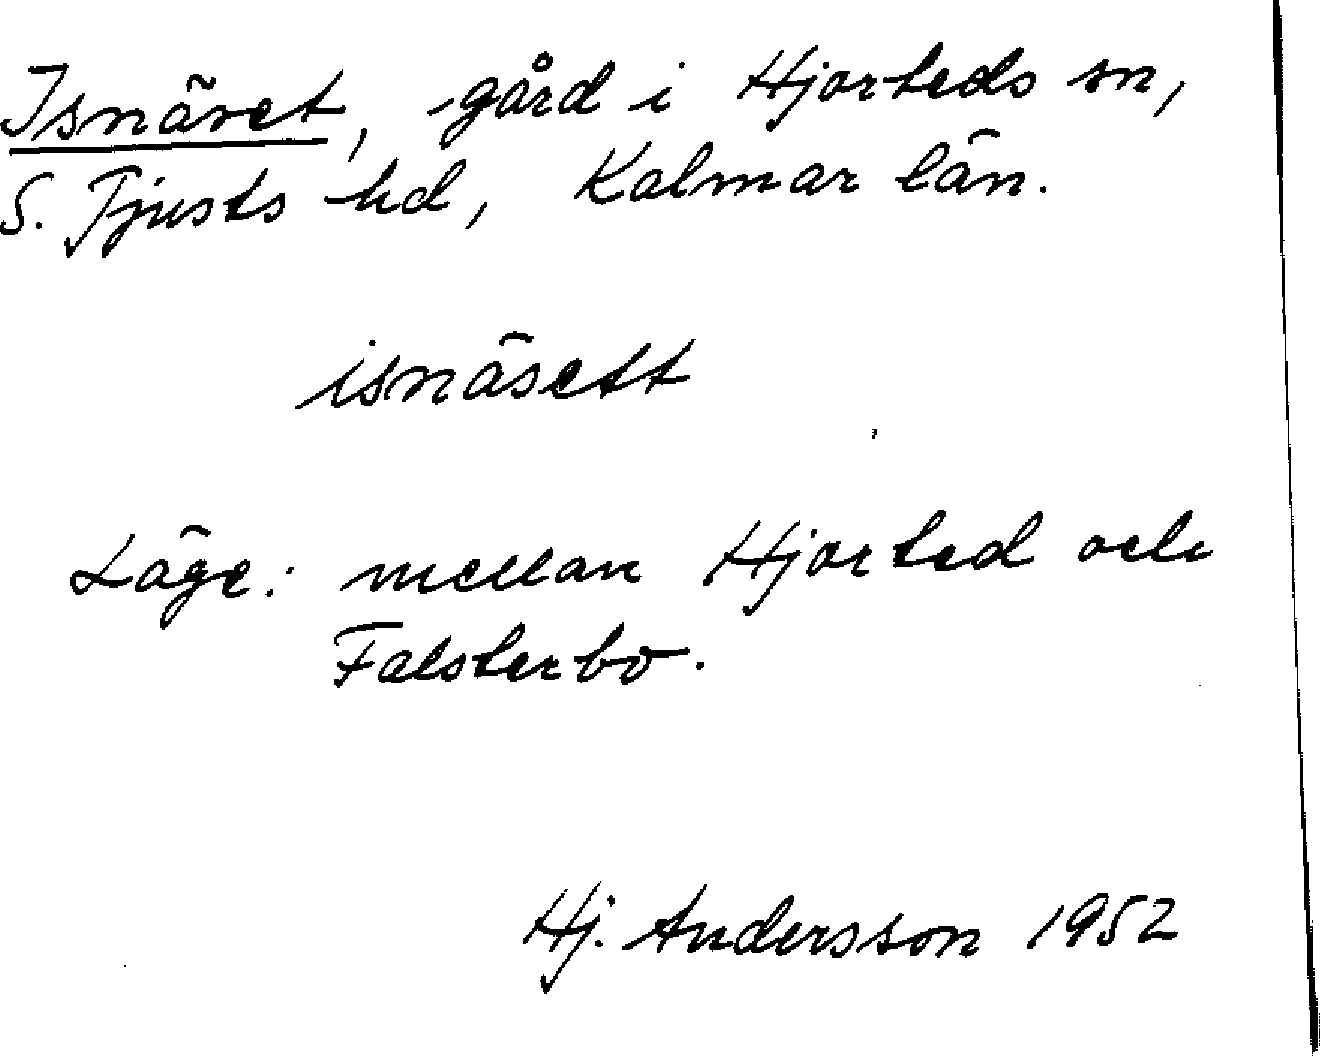 Isnäset, gård i Hjorteds sn,
S. Tjusts hd, Kalmar län.
isnäsett
Läge: mellan Hjorted och
Falsterbo.
Hj. Andersson 1952